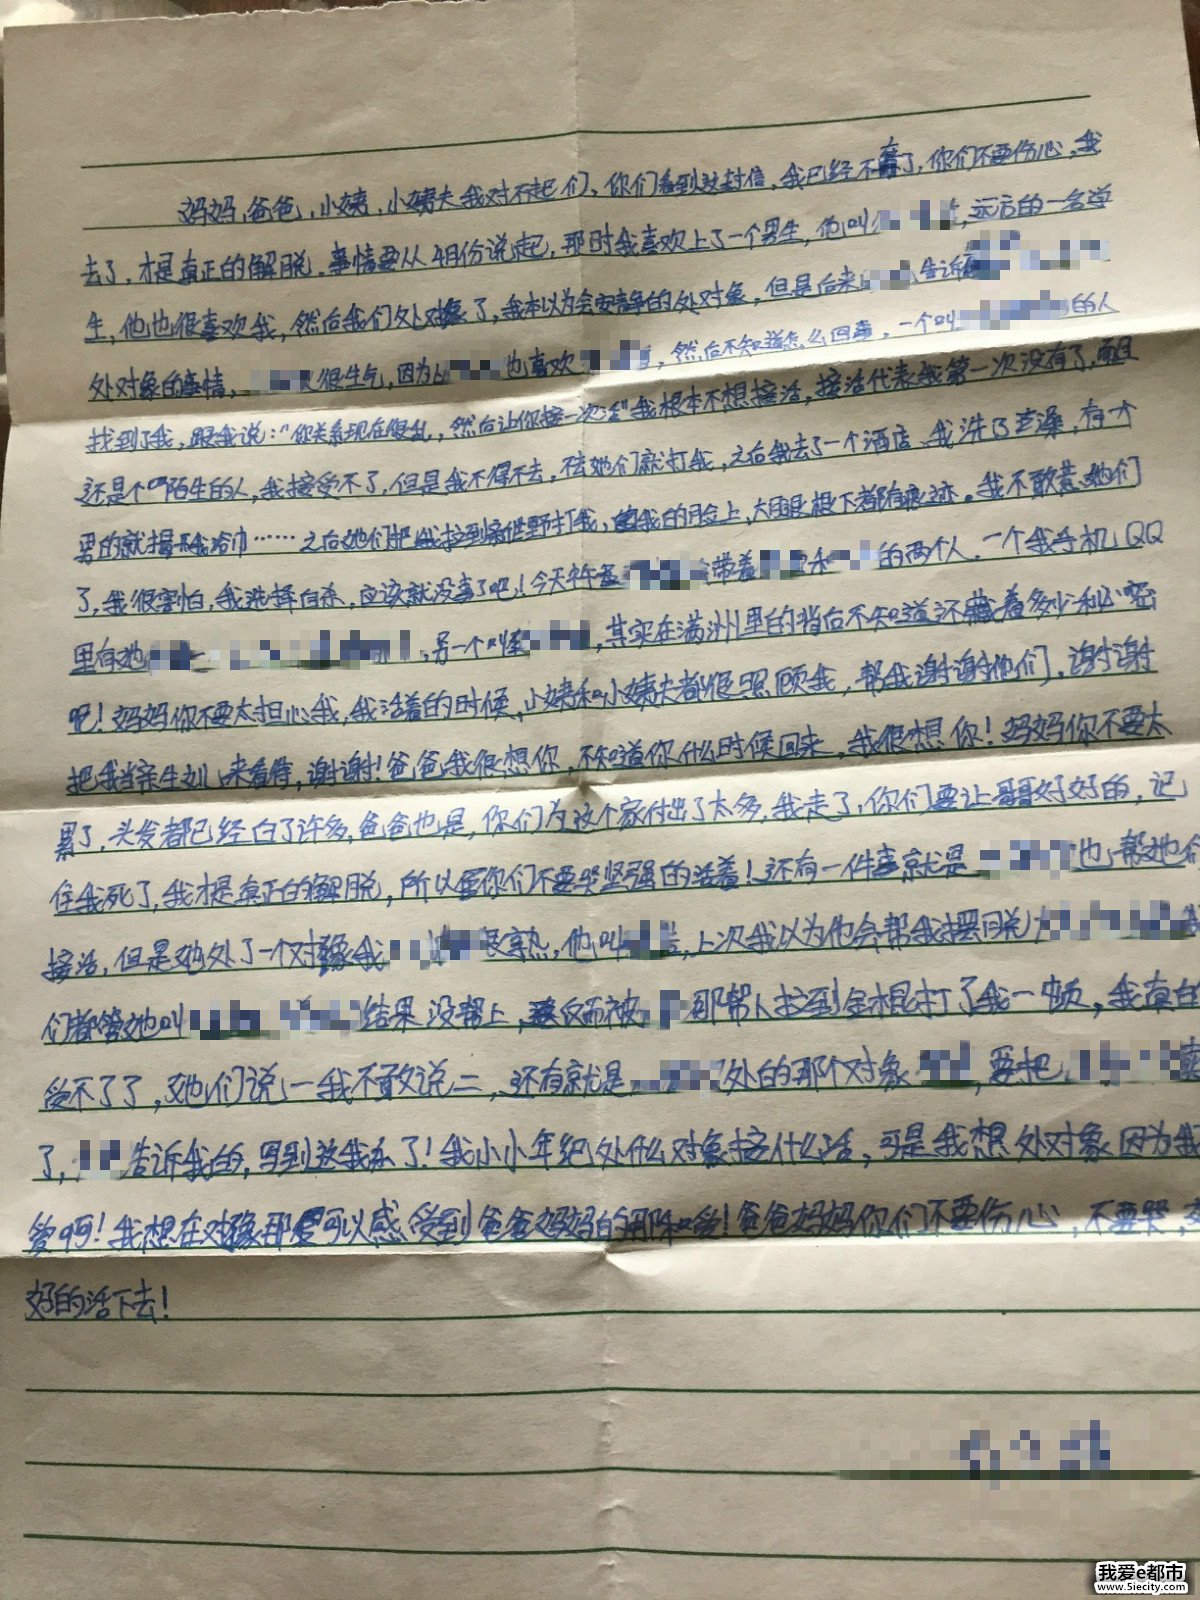 妈妈,爸爸,小姨,小姨夫我对不起们、你们看到这封信,我已经不在了,你们不要伤心,我
去了,才是真正的解脱。事情要从4月份说起,那时我喜欢上了一个男生,他叫,远方的一名学
生,他也很喜欢我,然后我们处对象了,我本以为会安静的处对象,但是后来告诉
处对象的事情,很生气,因为也喜欢,然后不知道怎么回事,一个叫的人
找到了我,跟我说:“你关系现在很乱,然后让你接一次活”我根本不想接活,接活代表我第一次没有了,而且
还是个陌生的人,我接受不了,但是我不得不去,不去她们就打我,之后我去了一个酒店、我洗了澡,有个
男的就我浴巾……之后她们把我拉到打我,我的脸上,大腿根下都有痕迹。我不敢惹她们
了,我很害怕,我选择自杀,应该就没事了吧!今天带着和的两个人,一个我手机QQ
里有她,另一个叫,其实在满洲里的背后不知道还藏着多少秘密
吧!妈妈你不要太担心我,我活着的时候,小姨和小姨夫都很照顾我,帮我谢谢他们,谢谢
把我当亲生女儿来看待,谢谢!爸爸我很想你,不知道你什么时候回来,我很想你!妈妈你不要太
累了,头发都已经白了许多,爸爸也是,你们为这个家付出了太多,我走了,你们要让哥哥好好的,记
住我死了,我才是真正的解脱,所以你们不要哭坚强的活着!还有一件事就是也帮她们
接活,但是她处了一个对象我很熟,他叫,上次我以为他会帮我摆
们都管她叫结果没帮上,反而被那帮人拉到金棍打了我一顿,我真的
受不了了,她们说一我不敢说二,还有就是处的那个对象,要把
了,告诉我的,写到这我哭了!我小小年纪处什么对象接什么活,可是我想处对象因为我
爱啊!我想在对象那可以感受到爸爸妈妈的爱!爸爸妈妈你们不要伤心,不要哭,
好的活下去!
我爱e都市
www.5iecity.com